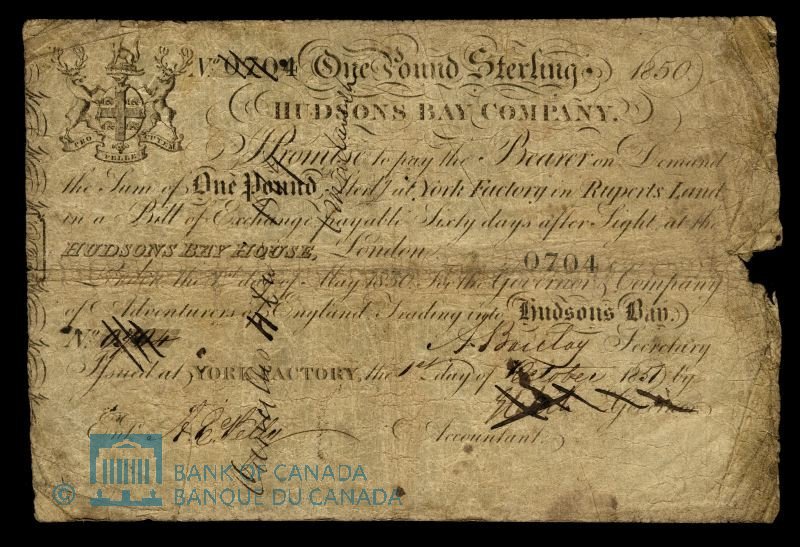 No 0704 One Pound Sterling 1850
HUDSONS BAY COMPANY.
PRO PELLE CUTEM
I Promise to pay the Bearer on Demand
the Sum of One Pound Sterlg at York Factory in Ruperts Land
in a Bill of Exchange payable Sixty days after Sight at the
HUDSONS BAY HOUSE, London.
0704
the 1st day of May 1850. For the Governor & Company
of Adventurers of England Trading into Hudsons Bay.
No 0704
Secretary
Issued at YORK FACTORY, the 1st day of October 1850 by
Governor
Entd
Accountant.
© BANK OF CANADA
BANQUE DU CANADA